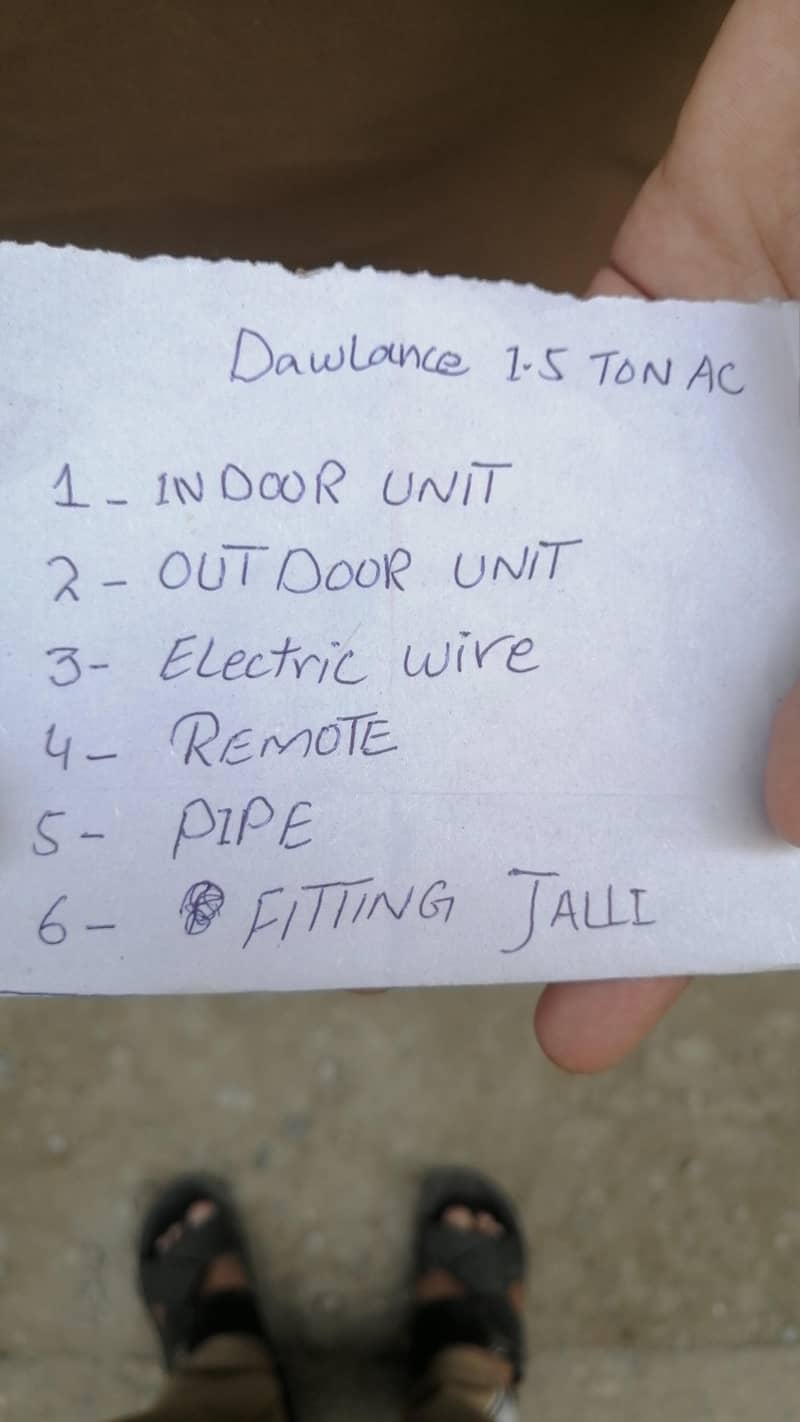 Dawlance 1.5 TON AC
1- INDOOR UNIT
2- OUTDOOR UNIT
3- Electric wire
4- REMOTE
5- PIPE
6- FITTING JALLI